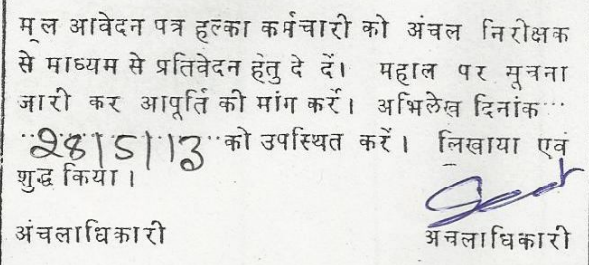 मूल आवेदन पत्र हल्का कर्मचारी को अंचल निरीक्षक
से माध्यम से प्रतिवेदन हेतु दे दें। महाल पर सूचना
जारी कर आपूर्ति की मांग करें। अभिलेख दिनांक ...
28/5/13 को उपस्थित करें। लिखाया एवं
शुद्ध किया।
अंचलाधिकारी अंचलाधिकारी